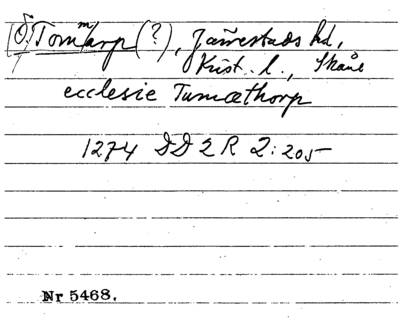 [Ö. Tommarp (?), Järrestads hd,
Krist. l., Skåne
ecclesie Tumæthorp
1274 DD 2 R 2:205
Nr 5468.